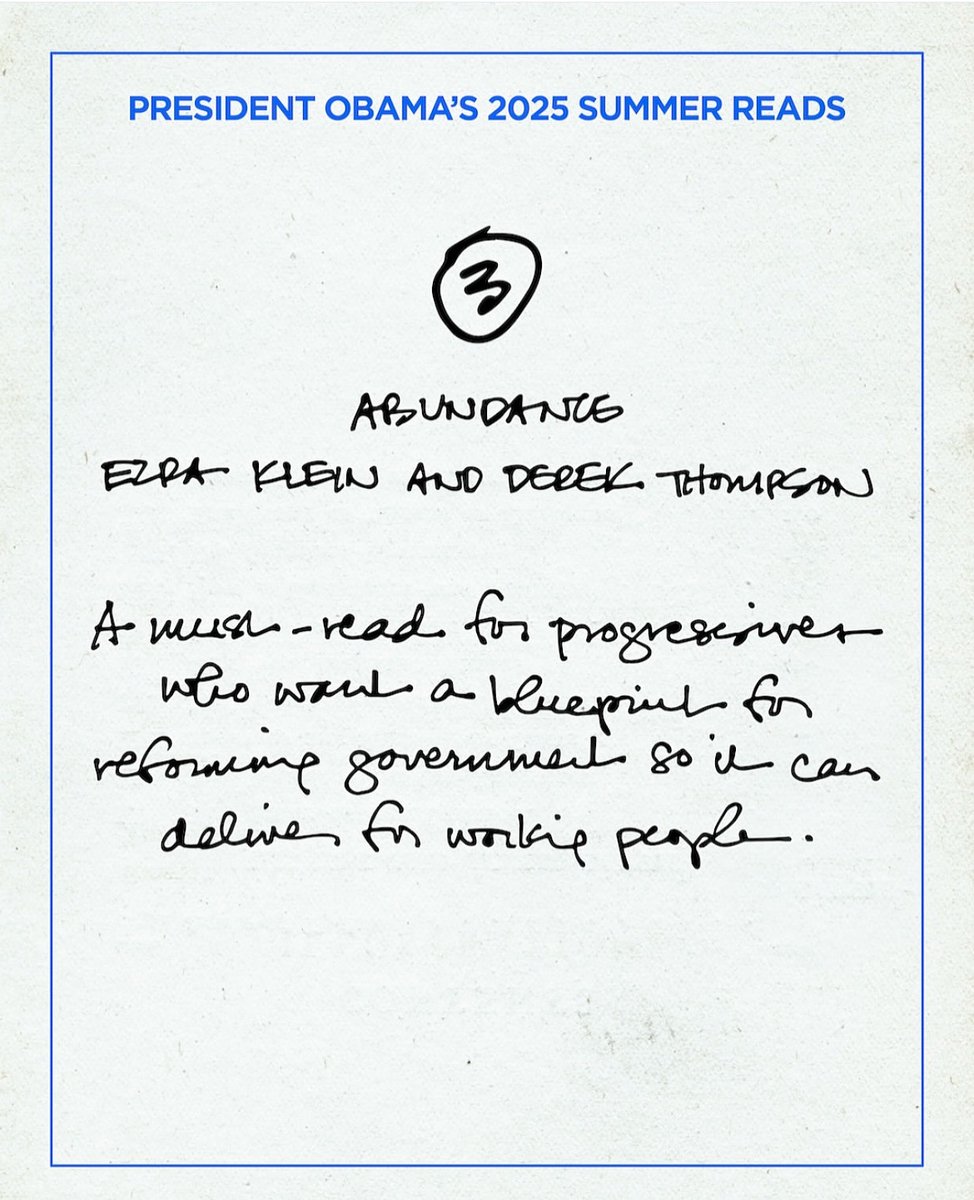 PRESIDENT OBAMA’S 2025 SUMMER READS
3
ABUNDANCE
EZRA KLEIN AND DEREK THOMPSON
A must-read for progressives
who want a blueprint for
reforming government so it can
deliver for working people.